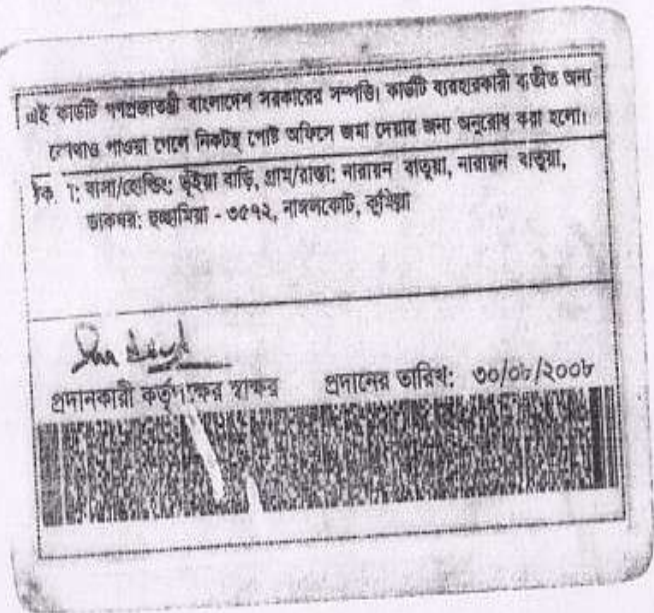 এই কার্ডটি গণপ্রজাতন্ত্রী বাংলাদেশ সরকারের সম্পত্তি। কার্ডটি ব্যবহারকারী ব্যতীত অন্য
কোথাও পাওয়া গেলে নিকটস্থ পোষ্ট অফিসে জমা দেয়ার জন্য অনুরোধ করা হলো।
বাসা/হোল্ডিং: ভূঁইয়া বাড়ি, গ্রাম/রাস্তা: নারায়ন বাতুয়া, নারায়ন বাতুয়া,
ডাকঘর: - ৩৫৭২, নাঙ্গলকোট, কুমিল্লা
প্রদানকারী কর্তৃপক্ষের স্বাক্ষর প্রদানের তারিখ: ৩০/০৮/২০০৮